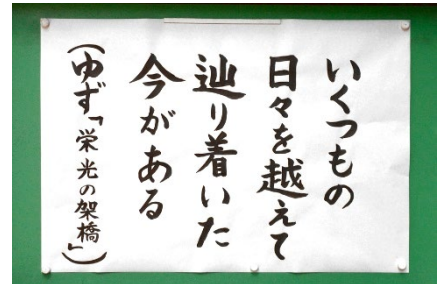 いくつもの
日々を越えて
辿り着いた
今がある
(ゆず「栄光の架橋」)